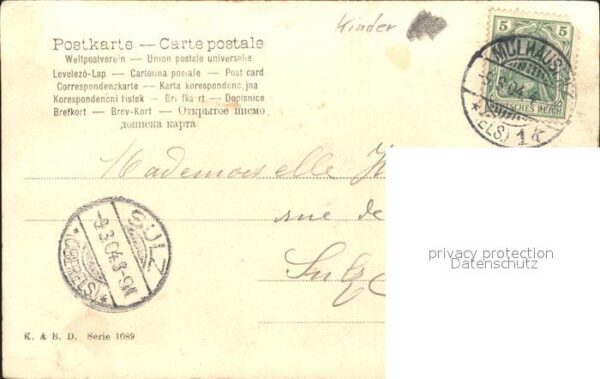 Kinder
Postkarte — Carte postale
Weltpostverein — Union postale universelle
Levelező-Lap — Cartolina postale — Post card
Correspondenzkarte — Karta korespondencyjna
Korespondenční lístek — Brefkort — Dopisnice
Brefkort — Brev-Kort — Открытое письмо
дописка карта
5 5
DEUTSCHES REICH
MÜLHAUSEN
3.04
(ELS) 1 k
Mademoiselle
rue de
Sulz
SULZ
-9.3.04.8-9V
*(OBERELS)*
privacy protection
Datenschutz
K. & B. D. Serie 1089